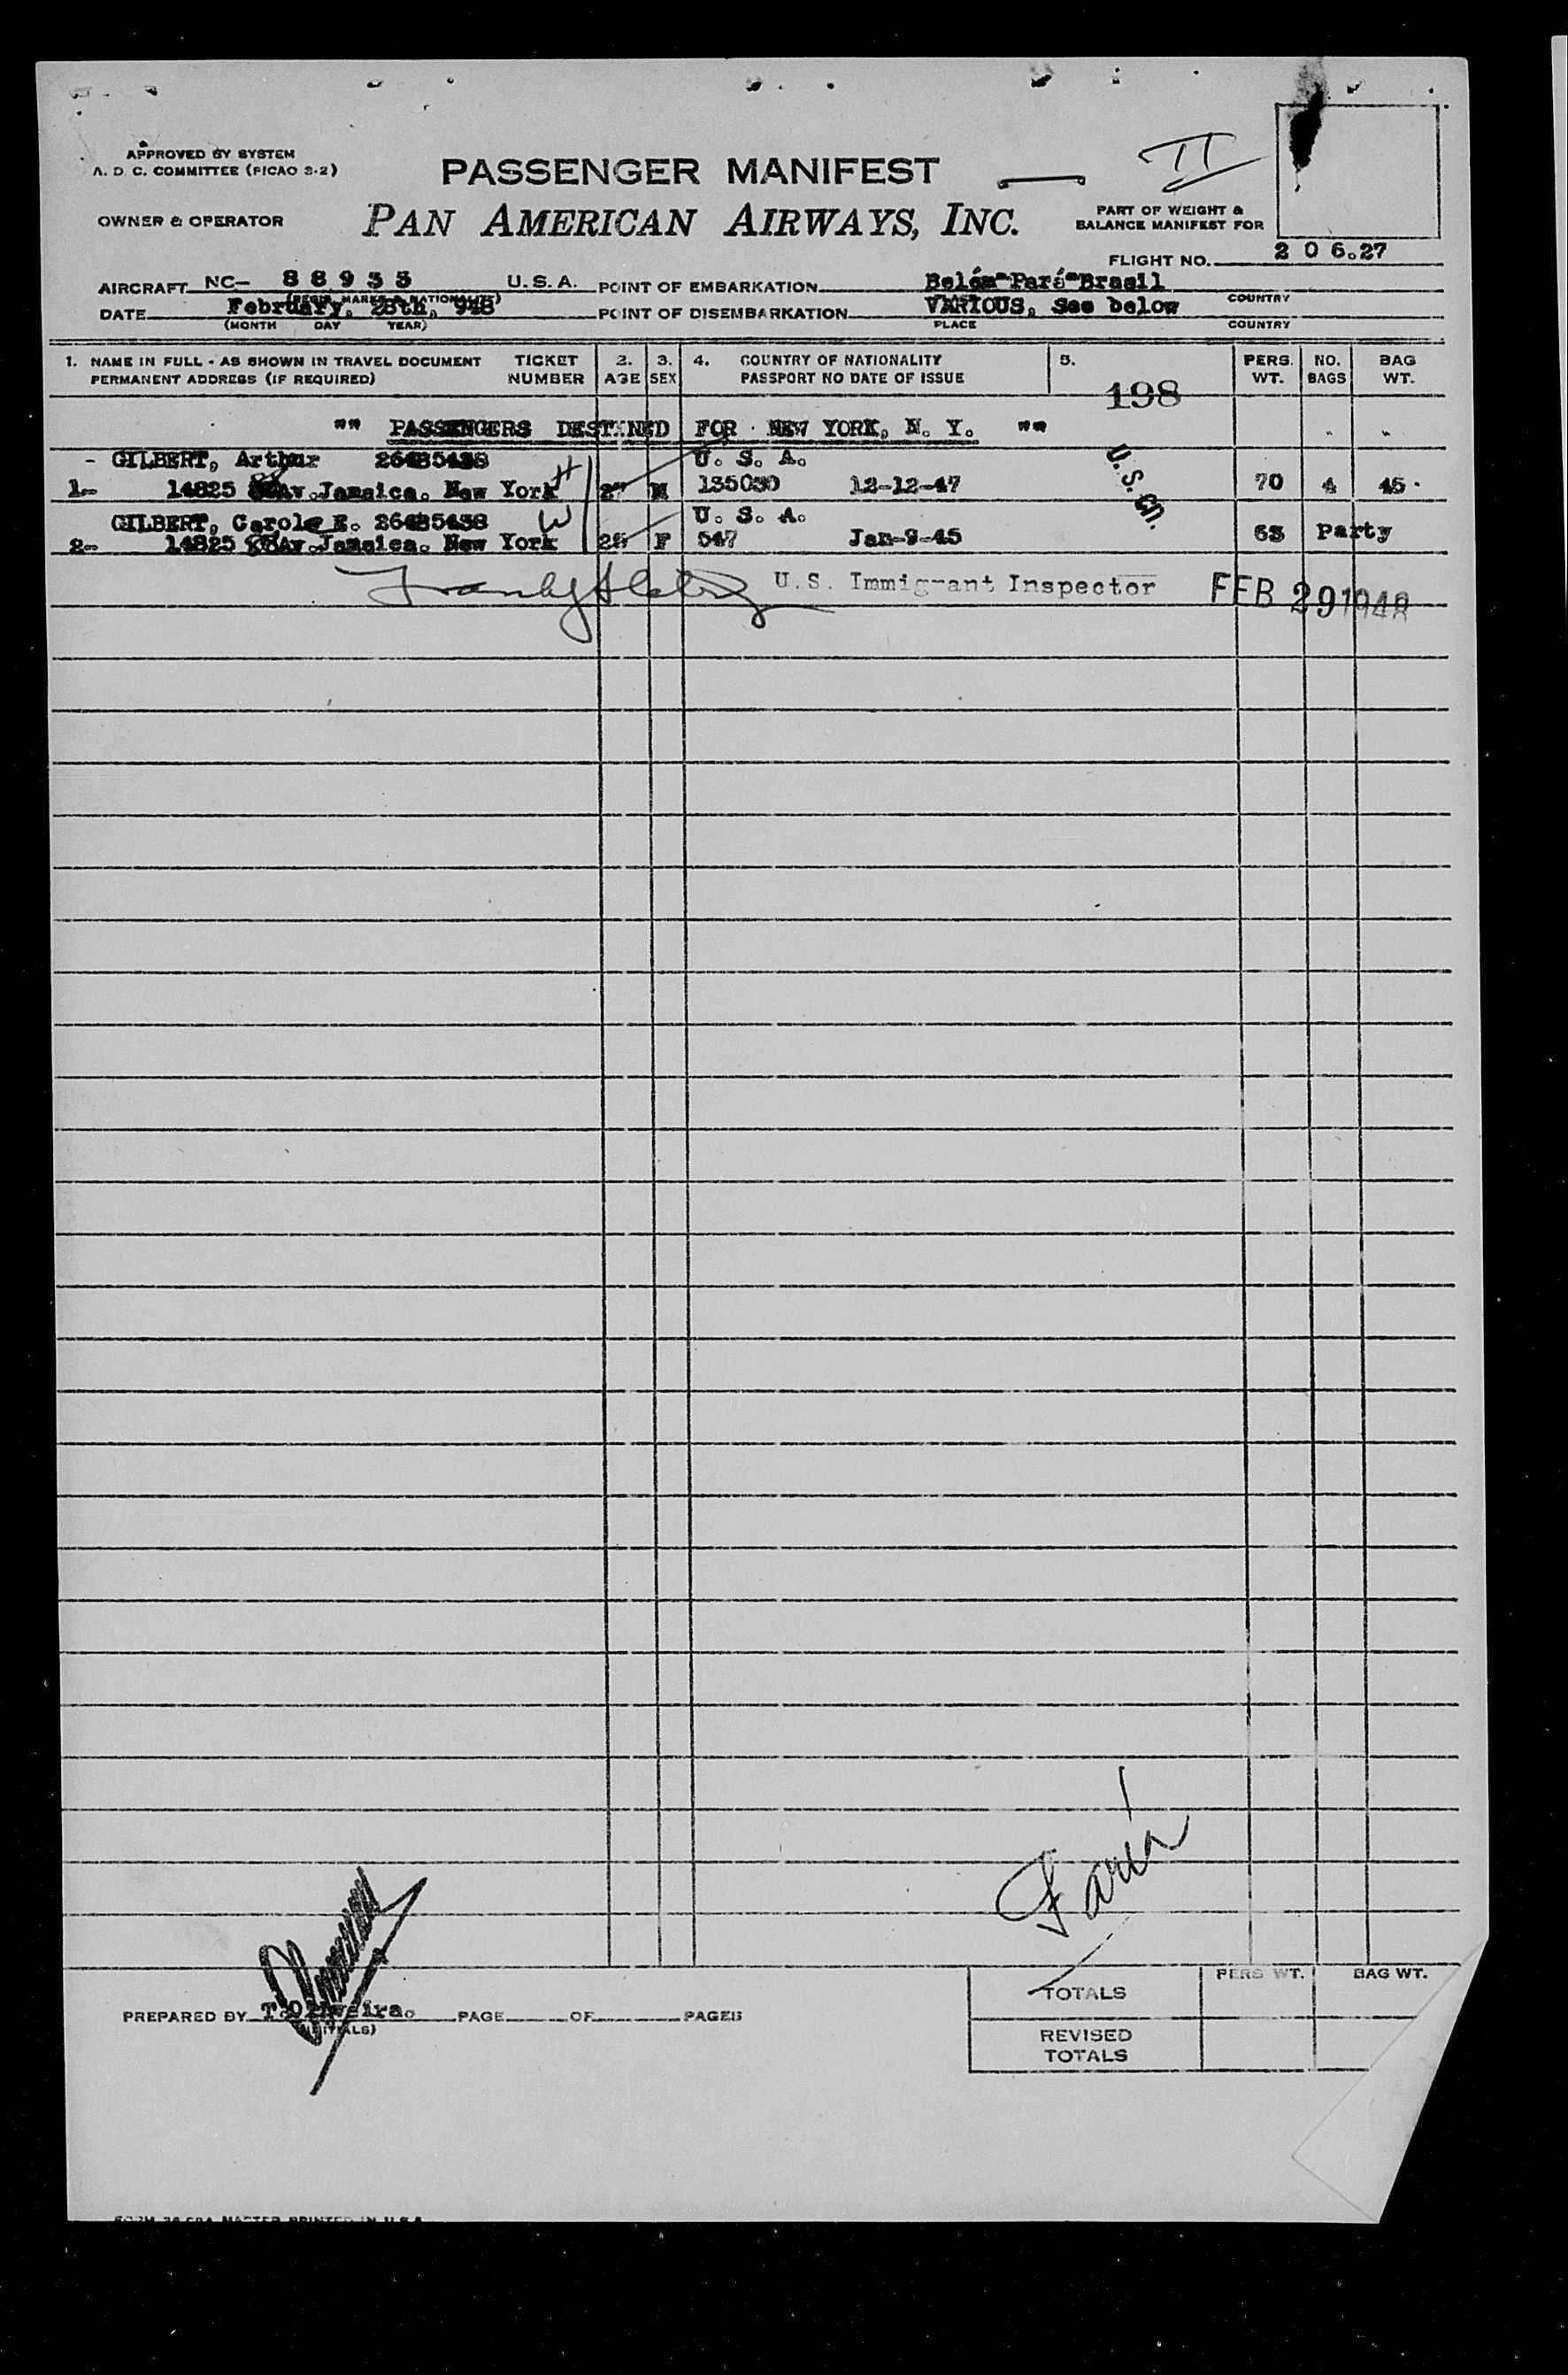 APPROVED BY SYSTEM
A. D. C. COMMITTEE (PICAO S-2)
PASSENGER MANIFEST
II
OWNER & OPERATOR
PAN AMERICAN AIRWAYS, INC.
PART OF WEIGHT &
BALANCE MANIFEST FOR
FLIGHT NO. 2 0 6.27
AIRCRAFT NC- 88933 U.S.A. POINT OF EMBARKATION Belém-Pará-Brasil
(REGIS. MARKS & NATIONALITY) COUNTRY
DATE February, 28th, 948 POINT OF DISEMBARKATION VARIOUS, See below
(MONTH DAY YEAR) PLACE COUNTRY
1. NAME IN FULL - AS SHOWN IN TRAVEL DOCUMENT TICKET 2. 3. 4. COUNTRY OF NATIONALITY 5. PERS. NO. BAG
PERMANENT ADDRESS (IF REQUIRED) NUMBER AGE SEX PASSPORT NO DATE OF ISSUE WT. BAGS WT.
198
"" PASSENGERS DESTINED FOR NEW YORK, N. Y. ""
- GILBERT, Arthur 26435438 U. S. A.
1- 14825 Av.Jamaica. New York H M 135030 12-12-47 U.S.Cn. 70 4 45
GILBERT, Carole E. 26435438 W U. S. A.
2- 14825 Av.Jamaica. New York F 547 Jan-9-45 63 Party
U.S. Immigrant Inspector FEB 29 1948
Faria
PERS WT. BAG WT.
TOTALS
PREPARED BY T.Oliveira. PAGE OF PAGES
(INITIALS)
REVISED
TOTALS